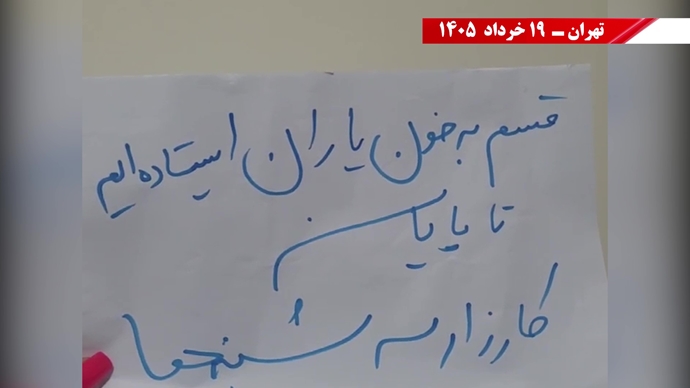 تهران ـ ۱۹ خرداد ۱۴۰۵
قسم به خون یاران ایستاده ایم
تا پایان
کارزار سه شنبه ها